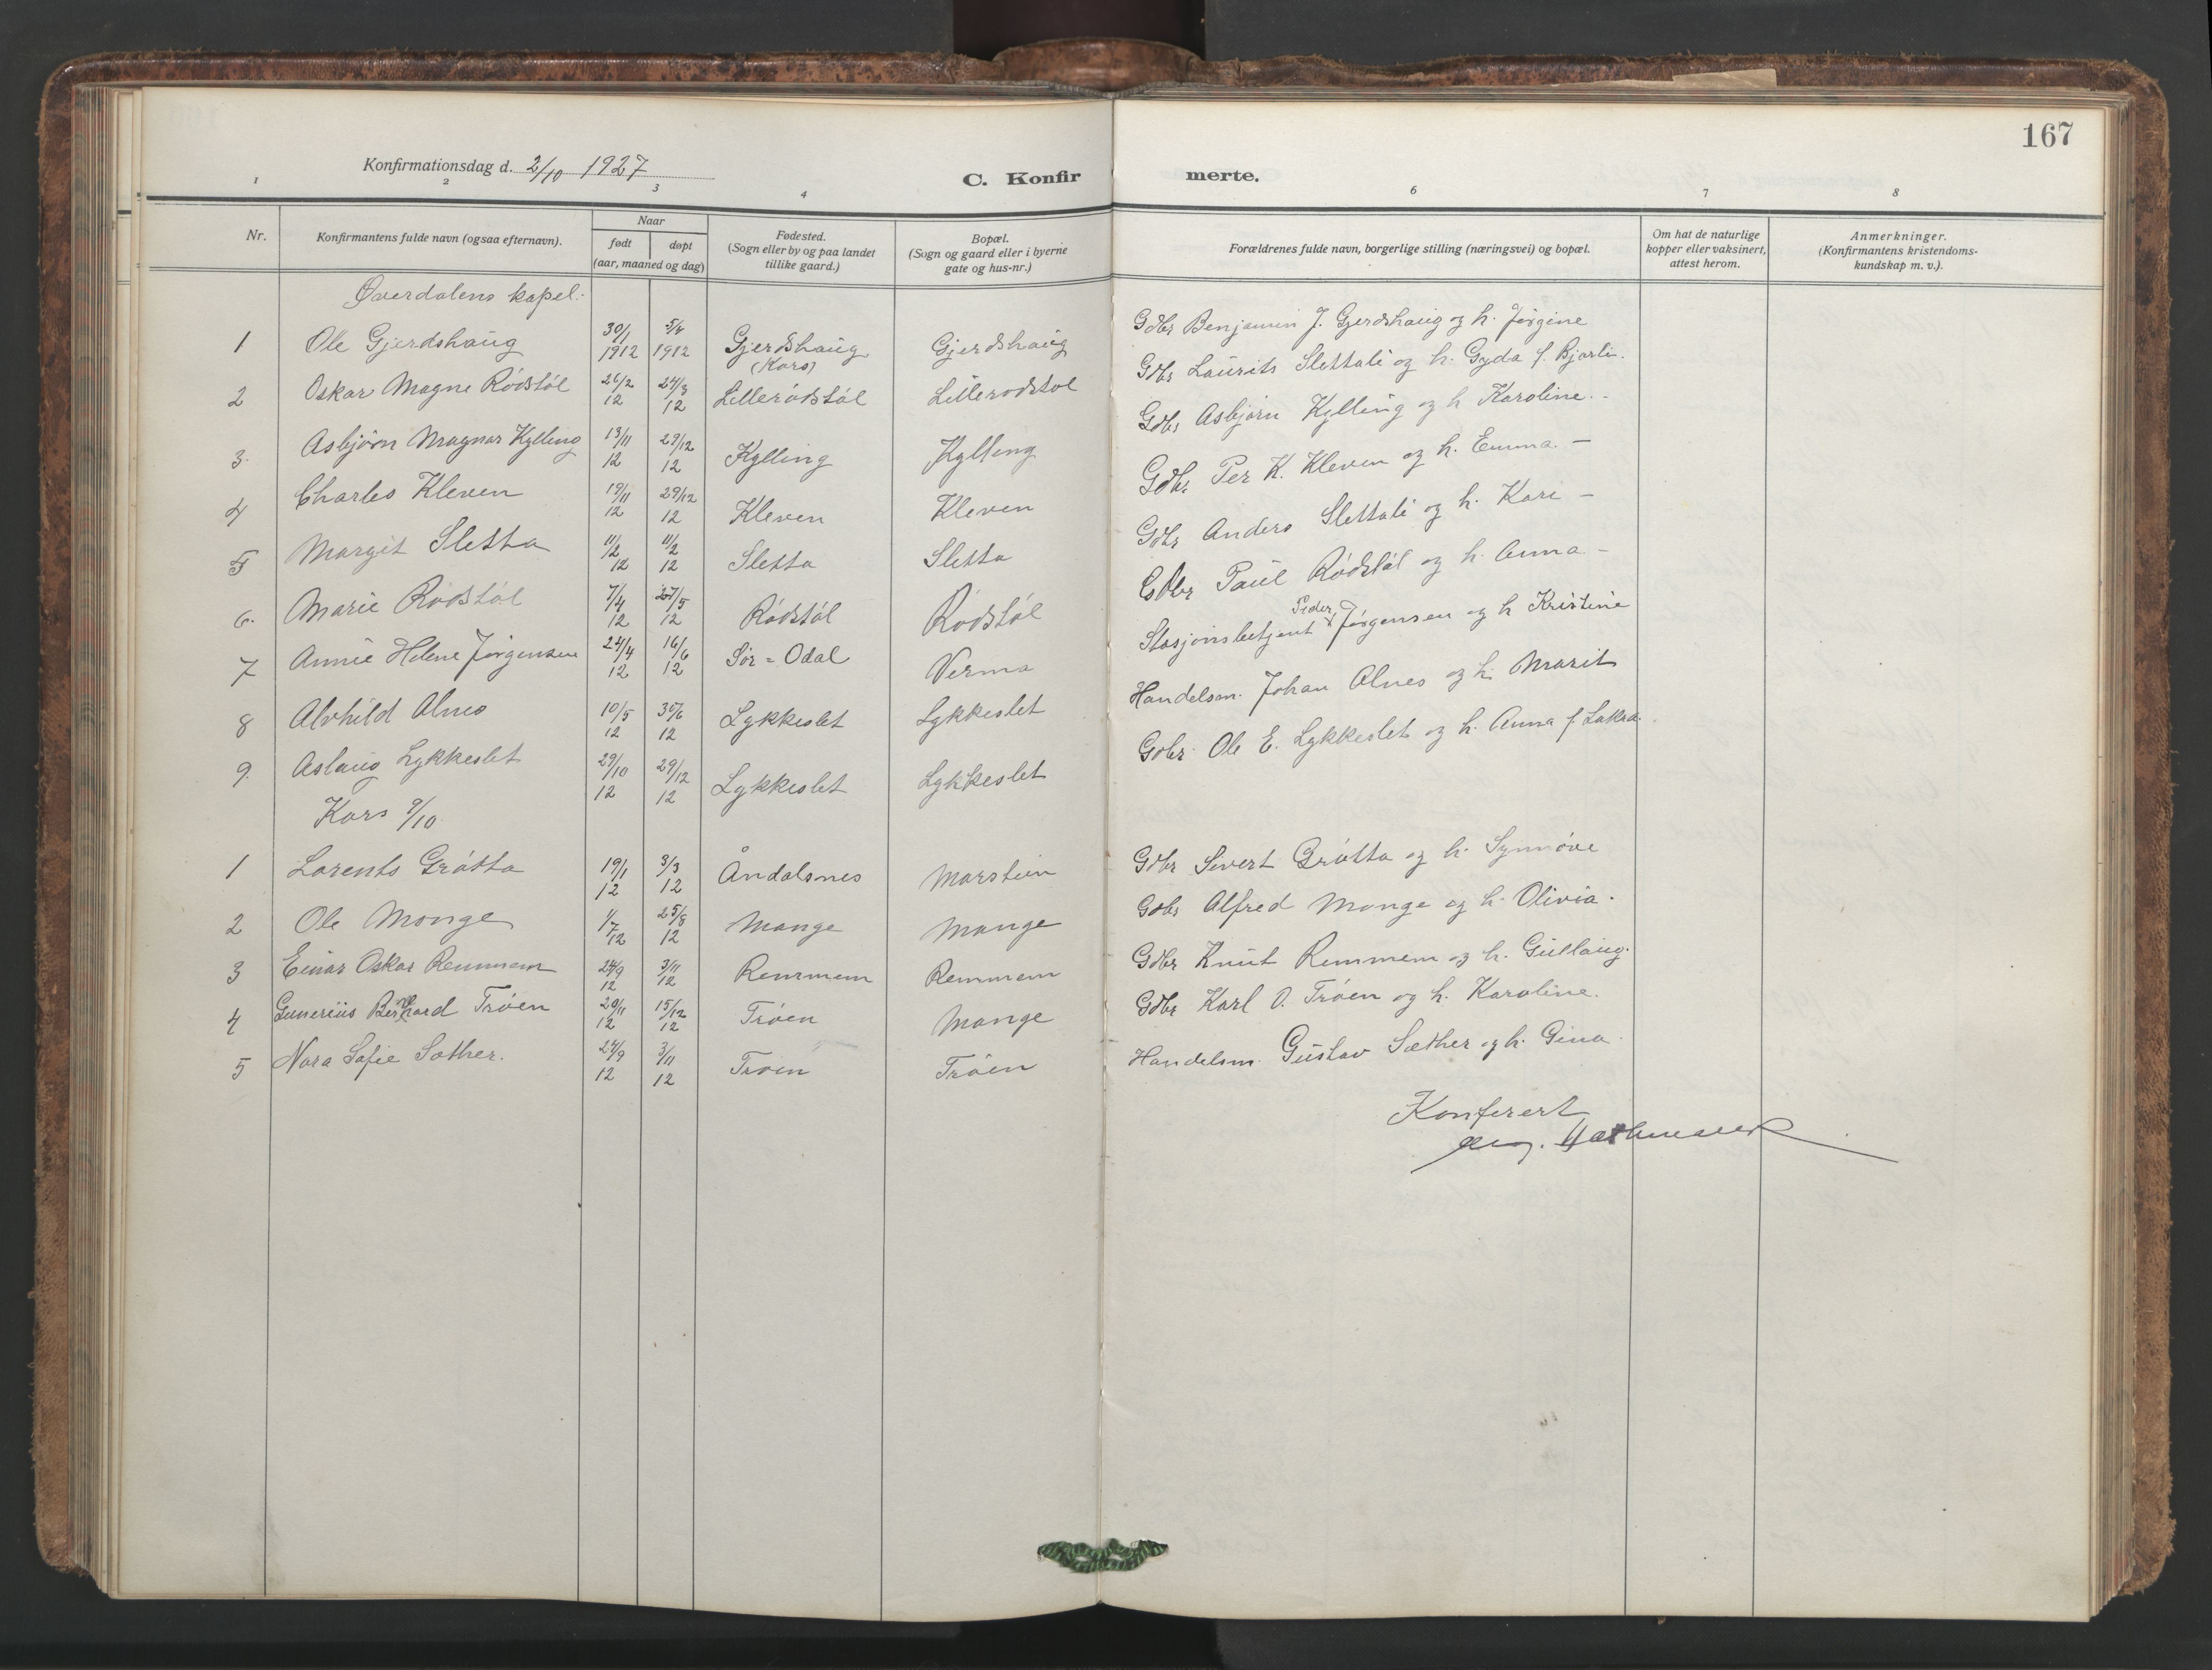 167
Konfirmationsdag d. 2/10 1927
C. Konfirmerte.
1 2 3 4 6 7 8
Nr. Konfirmantens fulde navn (ogsaa efternavn). Naar født døpt (aar, maaned og dag) Fødested. (Sogn eller by og paa landet tillike gaard.) Bopæl. (Sogn og gaard eller i byerne gate og hus-nr.) Forældrenes fulde navn, borgerlige stilling (næringsvei) og bopæl. Om hat de naturlige kopper eller vaksinert, attest herom. Anmerkninger. (Konfirmantens kristendomskundskap m. v.).
Øverdalens kapel.
1 Ole Gjerdshaug 30/1 1912 5/4 1912 Gjerdshaug (Kors) Gjerdshaug Gdbr Benjamin J. Gjerdshaug og h. Jørgine
2 Oskar Magne Rødstøl 26/2 12 24/3 12 Lillerødstøl Lillerødstøl Gdbr Laurits Slettali og h. Gyda f. Bjorli.
3. Asbjørn Magnar Kylling 13/11 12 29/12 12 Kylling Kylling Gdbr Asbjørn Kylling og h Karoline. -
4 Charles Kleven 19/11 12 29/12 12 Kleven Kleven Gdbr Per K. Kleven og h. Emma. -
5 Margit Sletta 11/2 12 11/2 12 Sletta Sletta Gdbr Anders Slettali og h. Kari -
6. Marie Rødstøl 7/4 12 27/5 12 Rødstøl Rødstøl Gdbr Paul Rødstøl og h. Anna -
7 Annie Helene Jørgensen 24/4 12 16/6 12 Sør-Odal Verma Stasjonsbetjent Peder Jørgensen og h Kristine
8 Alvhild Alnes 10/5 12 30/6 12 Lykkeslet Lykkeslet Handelsm. Johan Alnes og h. Marit
9. Aslaug Lykkeslet 29/10 12 29/12 12 Lykkeslet Lykkeslet Gdbr. Ole E. Lykkeslet og h. Anna f.
Kors 9/10.
1 Lorents Grøtta 19/1 12 3/3 12 Åndalsnes Marstein Gdbr Sivert Grøtta og h. Synnøve
2 Ole Monge 1/7 12 25/8 12 Monge Monge Gdbr Alfred Monge og h. Olivia.
3 Einar Oskar Remmem 24/9 12 3/11 12 Remmem Remmem Gdbr Knut Remmem og h. Gullaug.
4 Gunerius Bernhard Trøen 20/11 12 15/12 12 Trøen Monge Gdbr Karl O. Trøen og h. Karoline.
5 Nora Sofie Sæther. 24/9 12 3/11 12 Trøen Trøen Handelsm. Gustav Sæther og h. Gina.
Konferert